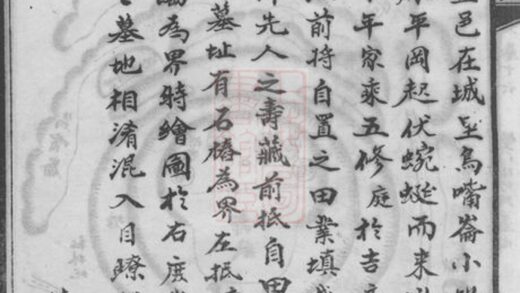 邑在城烏嘴崙小
平岡起伏蜿蜒而来
年家乘五修庭於吉
前将自置之田業填
先人之壽藏前抵自田
墓址有石樁為界左抵
為界時繪圖於右庶
墓地相淆混入目瞭